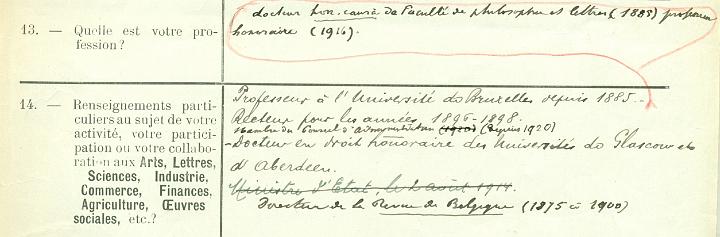 docteur hon. causa de Faculté de philosophie et lettres (1885) professeur
honoraire (1916).
13. — Quelle est votre pro-
fession?
14. — Renseignements parti-
culiers au sujet de votre
activité, votre partici-
pation ou votre collabo-
ration aux Arts, Lettres,
Sciences, Industrie,
Commerce, Finances,
Agriculture, Œuvres
sociales, etc.?
Professeur à l'Université de Bruxelles depuis 1885.
Recteur pour les années 1896-1898.
Membre du Conseil d'administration (1920) (depuis 1920)
Docteur en droit honoraire des Universités de Glascow et
d'Aberdeen.
Ministre d'Etat, le 2 août 1914.
Directeur de la Revue de Belgique (1875 à 1900)